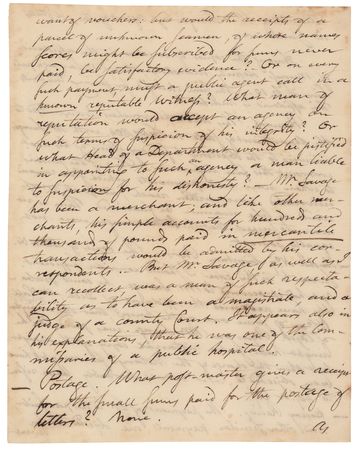 want of vouchers: but would the receipts of a
parcel of unknown seamen, of whose names
scores might be subscribed for sums never
paid, be satisfactory evidence? Or on every
such payment, must a public agent call in a
known reputable witness? What man of
reputation would accept an agency on
such terms of suspicion of his integrity? Or
what Head of a Department would be justified
in appointing to such an agency a man liable
to suspicion for his dishonesty? — Mr. Savage
has been a merchant; and like other mer-
chants, his simple accounts for hundreds and
thousands of pounds paid in mercantile
transactions would be admitted by his cor-
respondents. But Mr. Savage (as well as I
can recollect) was a man of such respecta-
bility as to have been a magistrate, and a
judge of a county Court. It appears also in
his explanations, that he was one of the Com-
missaries of a public hospital.
Postage. What post-master gives a receipt
for the small sums paid for the postage of
letters? None.
As